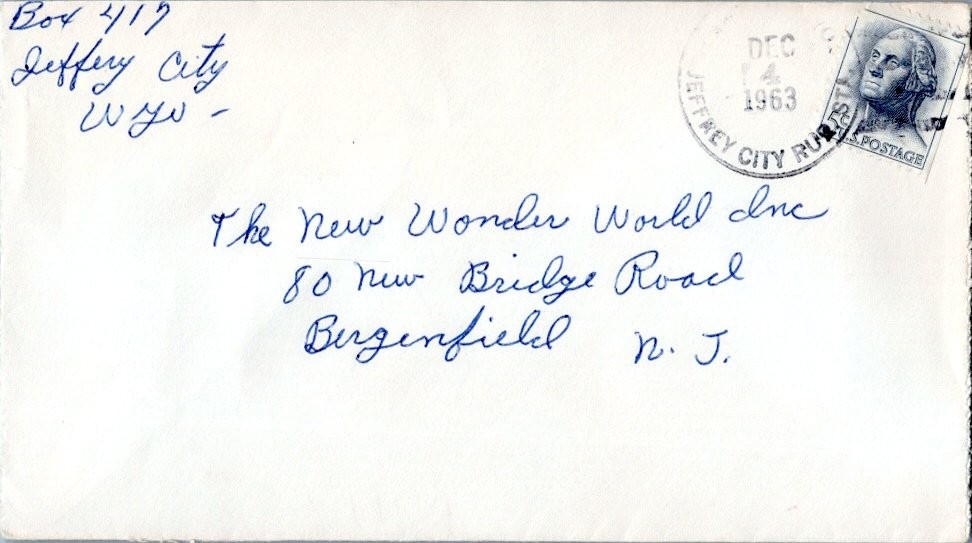 Box 417
Jeffery City
Wyo -
DEC
4
1963
JEFFREY CITY RUR. STA.
5¢
U.S. POSTAGE
The New Wonder World Inc
80 New Bridge Road
Bergenfield N. J.